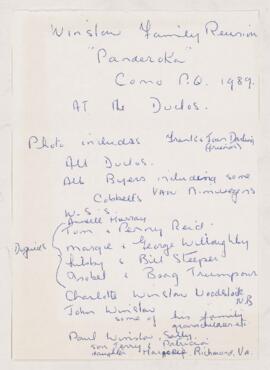 Winslow Family Reunion
"Panderoka"
Como P.Q. 1989.
AT the Duclos.
Photo includes Frank & Joan Darling
(friends)
All Duclos.
All Byers including some
Cobbetts Van Nimwegens
W.S.S.
Murray
Tom & Penny Reid.
Marque & George Willoughby
Kilby & Bill Steeper
Isobel & Boag Trumpour
Charlotte Winslow Woodstock
N.B
John Winslow
some of his family
grandchildren etc
Paul Winslow, Sally,
son Terry & Patricia
daughter Richmond, Va.